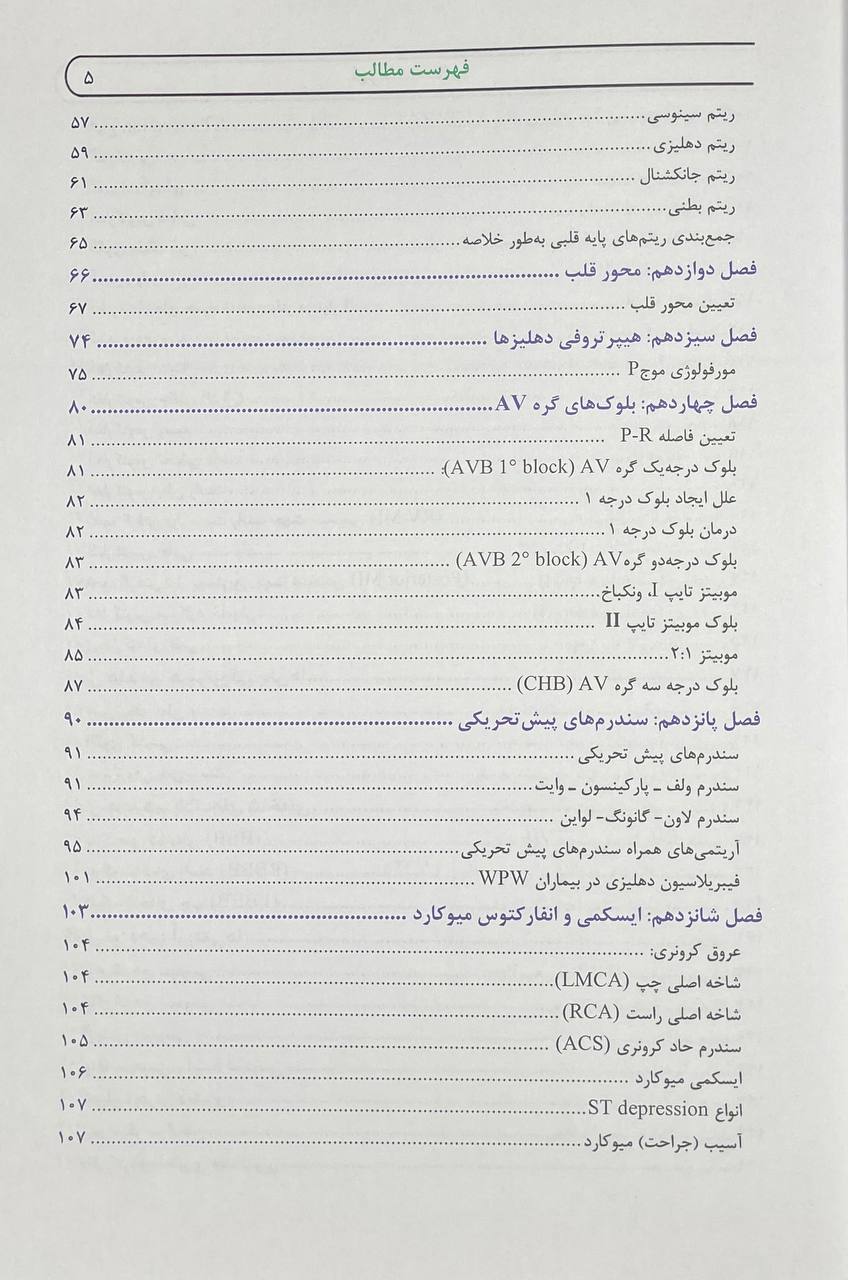 فهرست مطالب ۵
ریتم سینوسی ۵۷
ریتم دهلیزی ۵۹
ریتم جانکشنال ۶۱
ریتم بطنی ۶۳
جمع‌بندی ریتم‌های پایه قلبی به‌طور خلاصه ۶۵
فصل دوازدهم: محور قلب ۶۶
تعیین محور قلب ۶۷
فصل سیزدهم: هیپرتروفی دهلیزها ۷۴
مورفولوژی موجP ۷۵
فصل چهاردهم: بلوک‌های گره AV ۸۰
تعیین فاصله P-R ۸۱
بلوک درجه‌یک گره AV (AVB 1° block): ۸۱
علل ایجاد بلوک درجه ۱ ۸۲
درمان بلوک درجه ۱ ۸۲
بلوک درجه‌دو گرهAV (AVB 2° block) ۸۳
موبیتز تایپ I، ونکباخ ۸۳
بلوک موبیتز تایپ II ۸۴
موبیتز ۲:۱ ۸۵
بلوک درجه سه گره AV (CHB) ۸۷
فصل پانزدهم: سندرم‌های پیش‌تحریکی ۹۰
سندرم‌های پیش تحریکی ۹۱
سندرم ولف ـ پارکینسون ـ وایت ۹۱
سندرم لاون- گانونگ- لواین ۹۴
آریتمی‌های همراه سندرم‌های پیش تحریکی ۹۵
فیبریلاسیون دهلیزی در بیماران WPW ۱۰۱
فصل شانزدهم: ایسکمی و انفارکتوس میوکارد ۱۰۳
عروق کرونری: ۱۰۴
شاخه اصلی چپ (LMCA) ۱۰۴
شاخه اصلی راست (RCA) ۱۰۴
سندرم حاد کرونری (ACS) ۱۰۵
ایسکمی میوکارد ۱۰۶
انواع ST depression ۱۰۷
آسیب (جراحت) میوکارد ۱۰۷